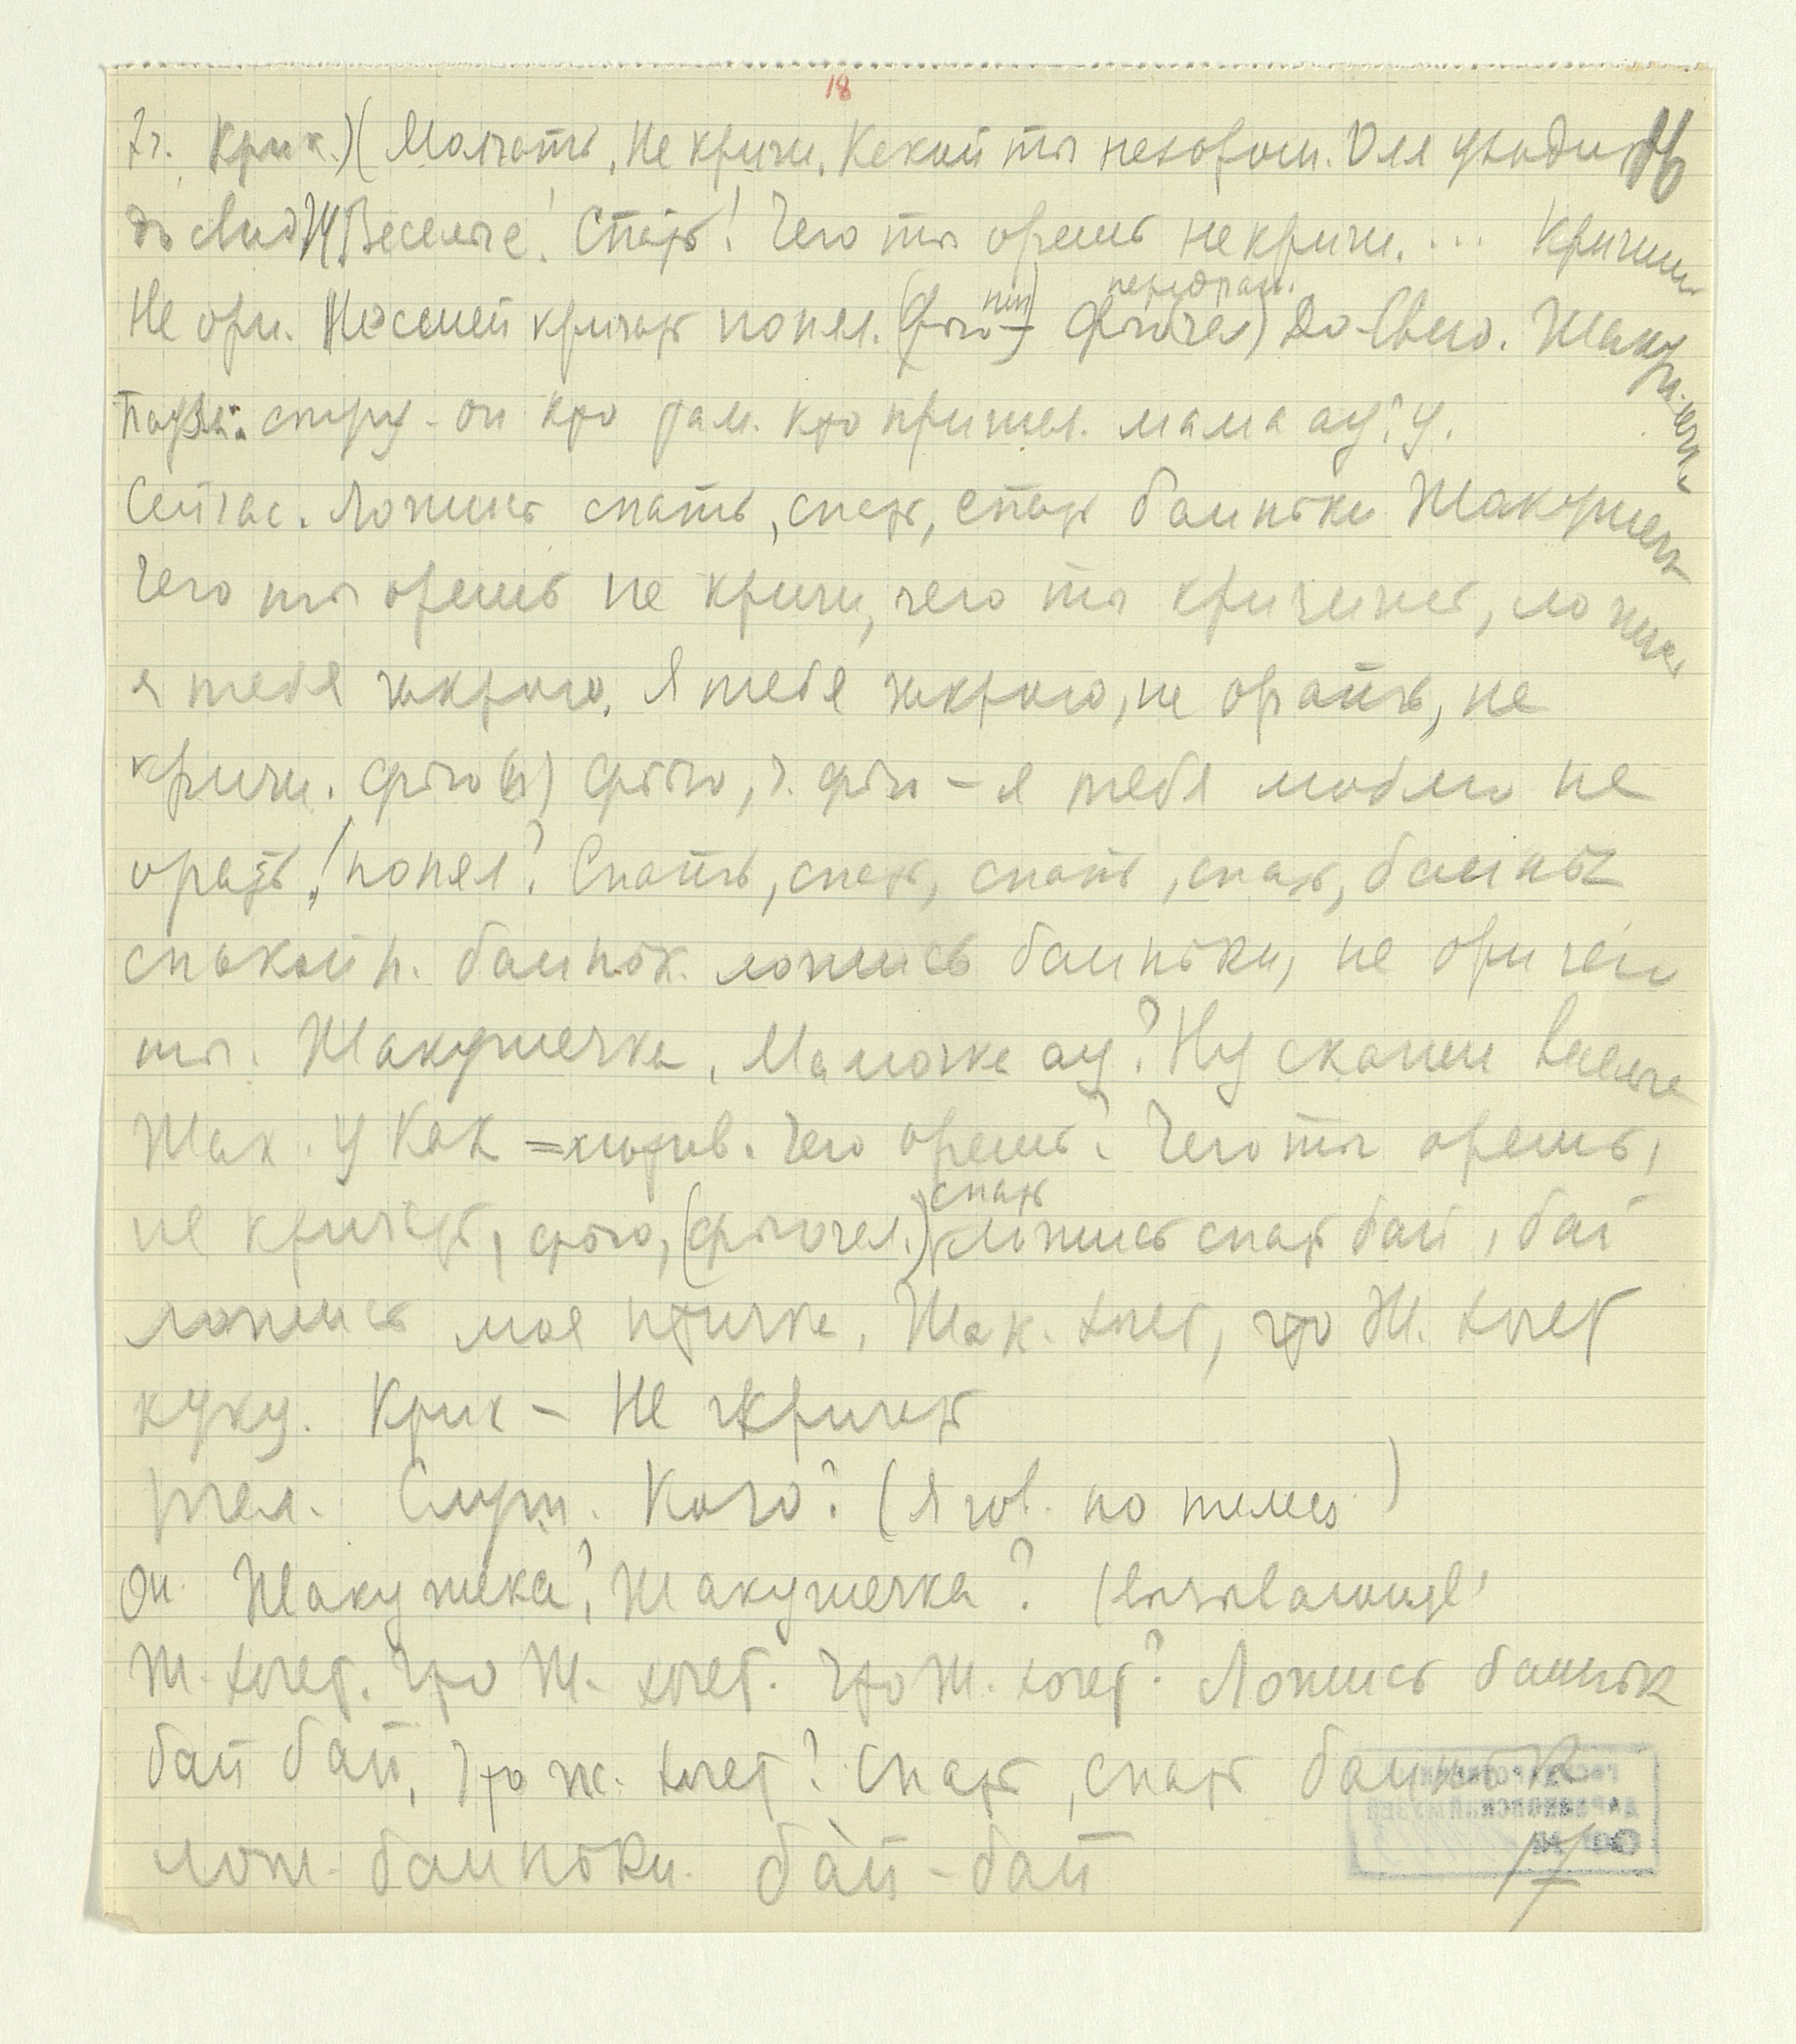 18
7ч. Крик.) (Молчать, Не кричи, Какой ты нехорош. Оля уходи
16
Веселые! Спать! Чего ты орешь не кричи. ... Кричиш
Не ори. Не смей кричать понял. (фью-) фьючел) До-Свид. Жаку-
стук - он кто там. кто пришел. мама ау? У.
Сейчас. Ложись спать, спать, спать баиньки Жакушеч
Чего ты орешь не кричи, чего ты кричишь, ложись
я тебя закрою, Я тебя закрою, не орать, не
кричи. фью фью, фью - я тебя люблю не
орать! понял? Спать, спать, спать, спать, баиньк
спокой н. баиньк. ложись баиньки, не ори чего
ты. Жакушечка, Мамочка ау? Ну скажи
Жак. У Как = Чего орешь? Чего ты орешь,
спать
не кричать, фью, (фьючел.) Ложись спать бай, бай
ложись моя птичка, Жак. хочет, что Ж. хочет
куку. Крик - Не кричать
тел. Слуш. Кого? (Я гов. по телеф.)
Он Жакушка? Жакушечка? (вызывающе)
Ж. хочет. Что Ж. хочет. Что Ж. хочет? Ложись баиньк
бай бай, Что ж. хочет? Спать, спать баиньк
лож. баиньки. бай-бай
17